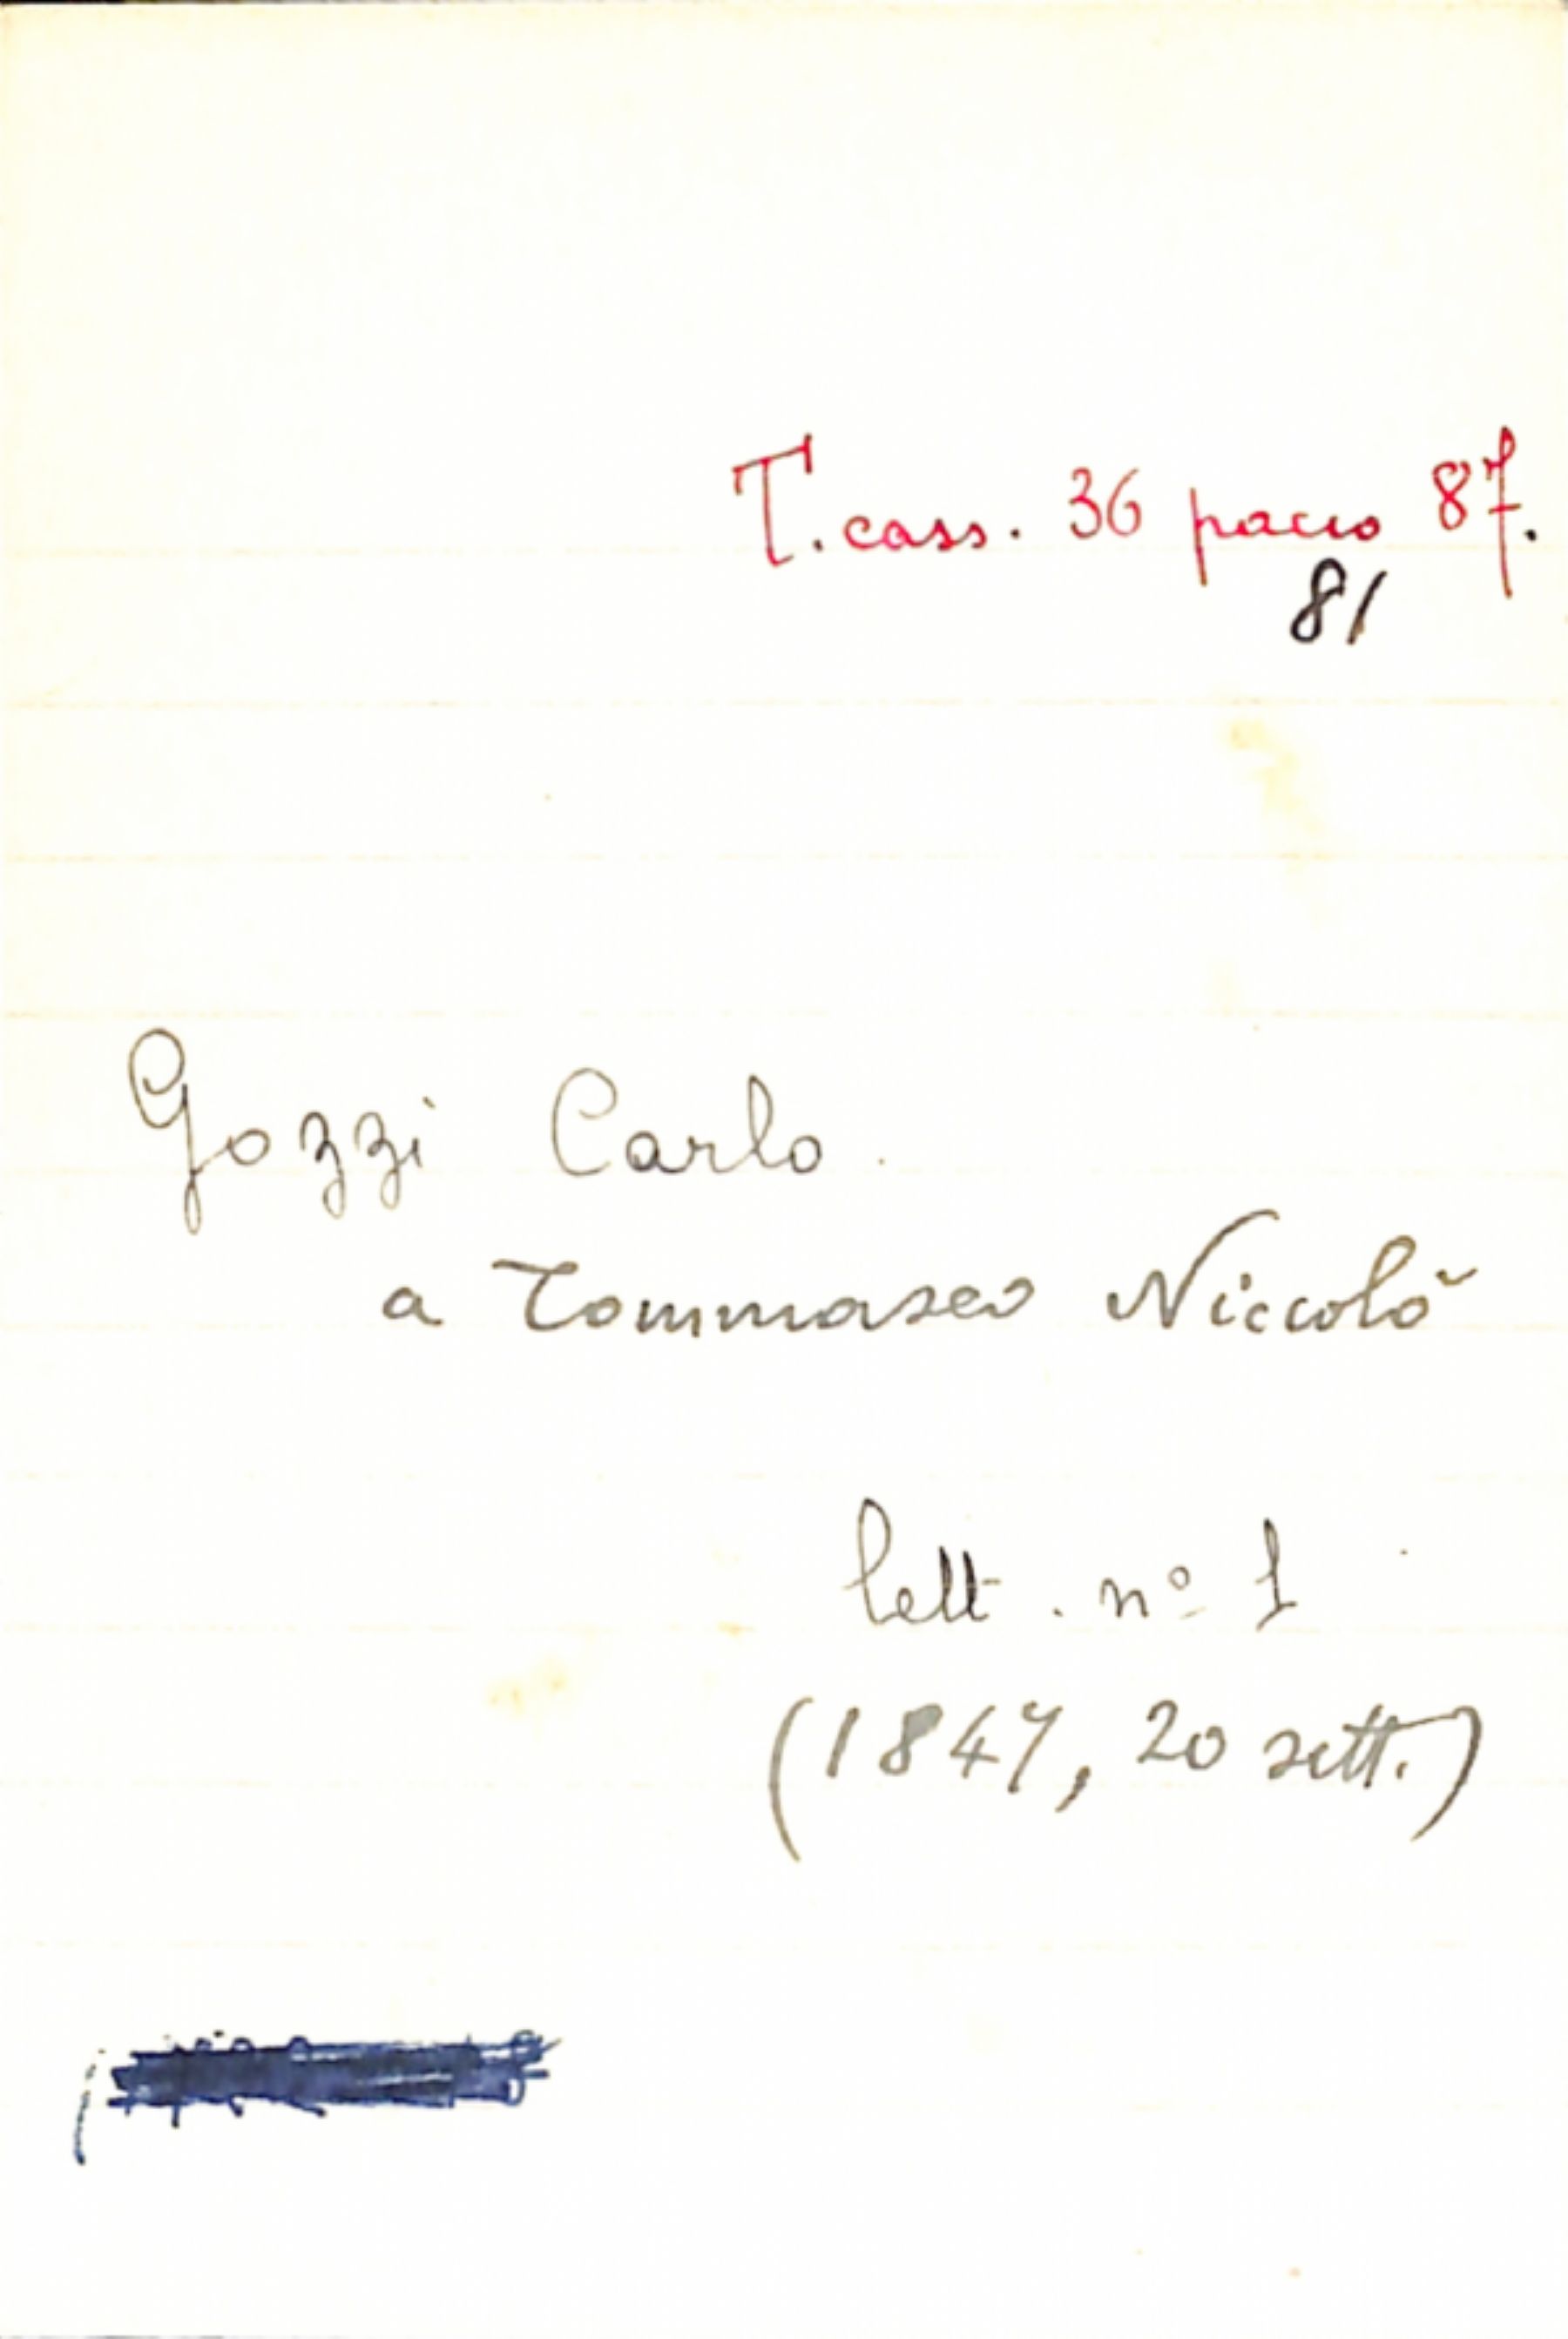 T. cass. 36 pacco 87.
81
Gozzi Carlo.
a Tommaseo Niccolò
lett. nº 1
(1847, 20 sett.)